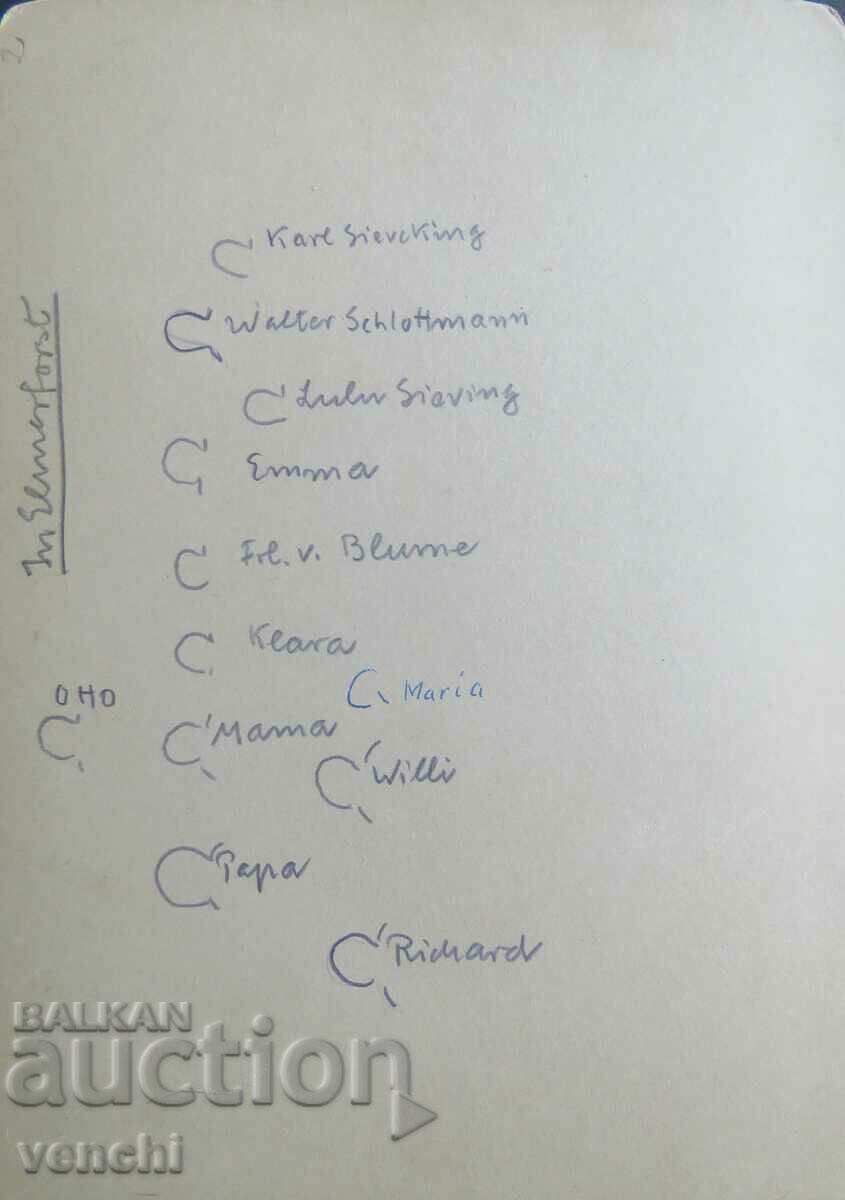 2
In Elmerforst
Karl Sieveking
Walter Schlottmann
Lulu Sieving
Emma
Frl. v. Blume
Klara
Maria
Otto
Mama
Willi
Papa
Richard
BALKAN
auction
venchi